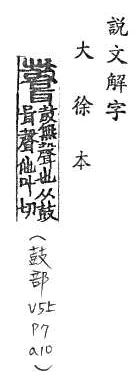 説文解字
大徐本
鼓無聲也从鼓
咠聲他叶切
(鼓部
V5上
P7
a10)